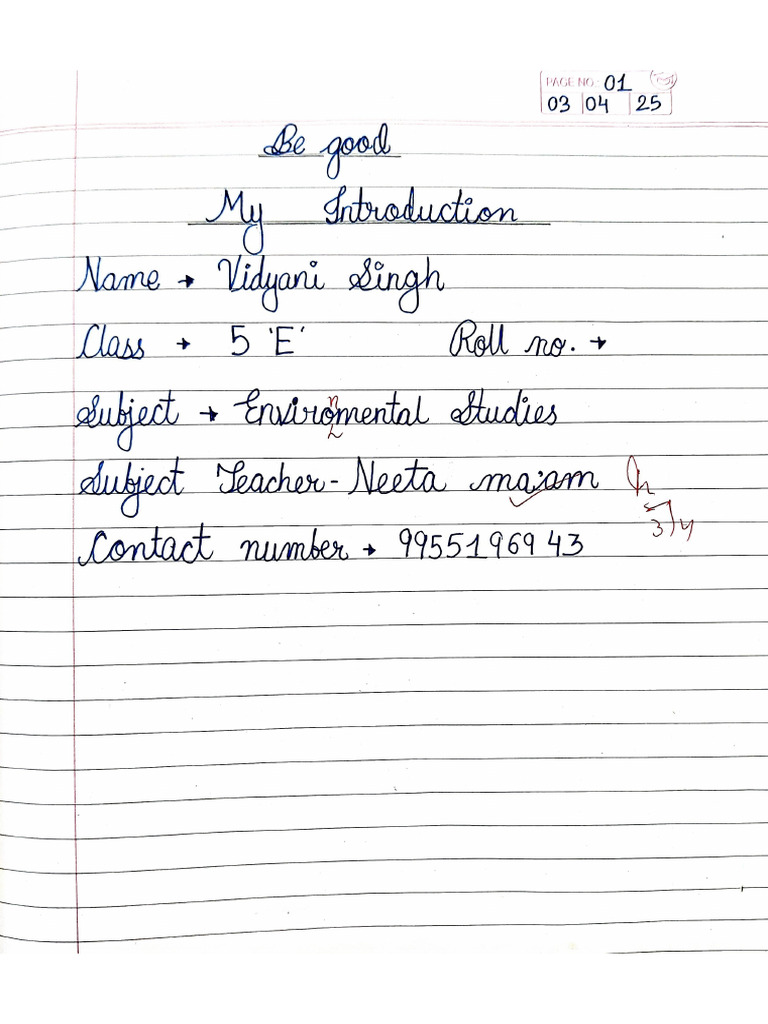 PAGE NO.: 01
03 04 25
Be good
My Introduction
Name → Vidyani Singh
Class → 5 'E' Roll no. →
n
Subject → Enviromental Studies
Subject Teacher - Neeta ma'am
3/4
Contact number → 9955196943